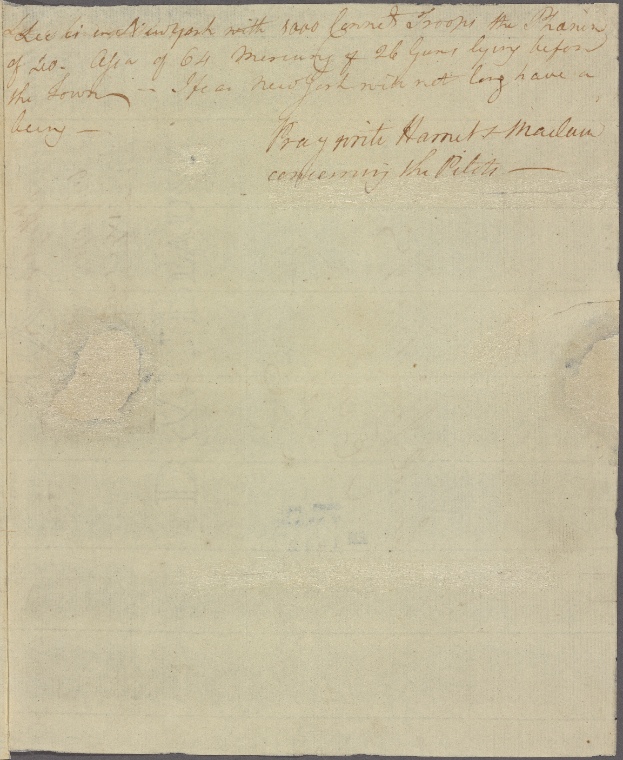 Lee is in New York with 5000 Connet Troops the Phœnix
of 40. Asia of 64 Mercury of 26 Guns lying before
the town — I fear New York will not long have a
being —
Pray write Harnet & Maclain
concerning the Pilots —